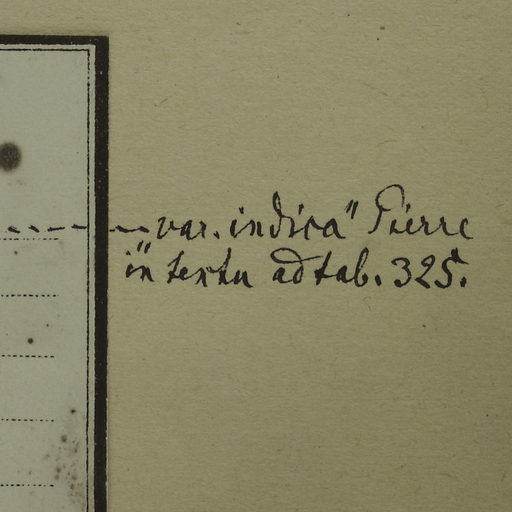 "var. indica" Pierre
in textu ad tab. 325.